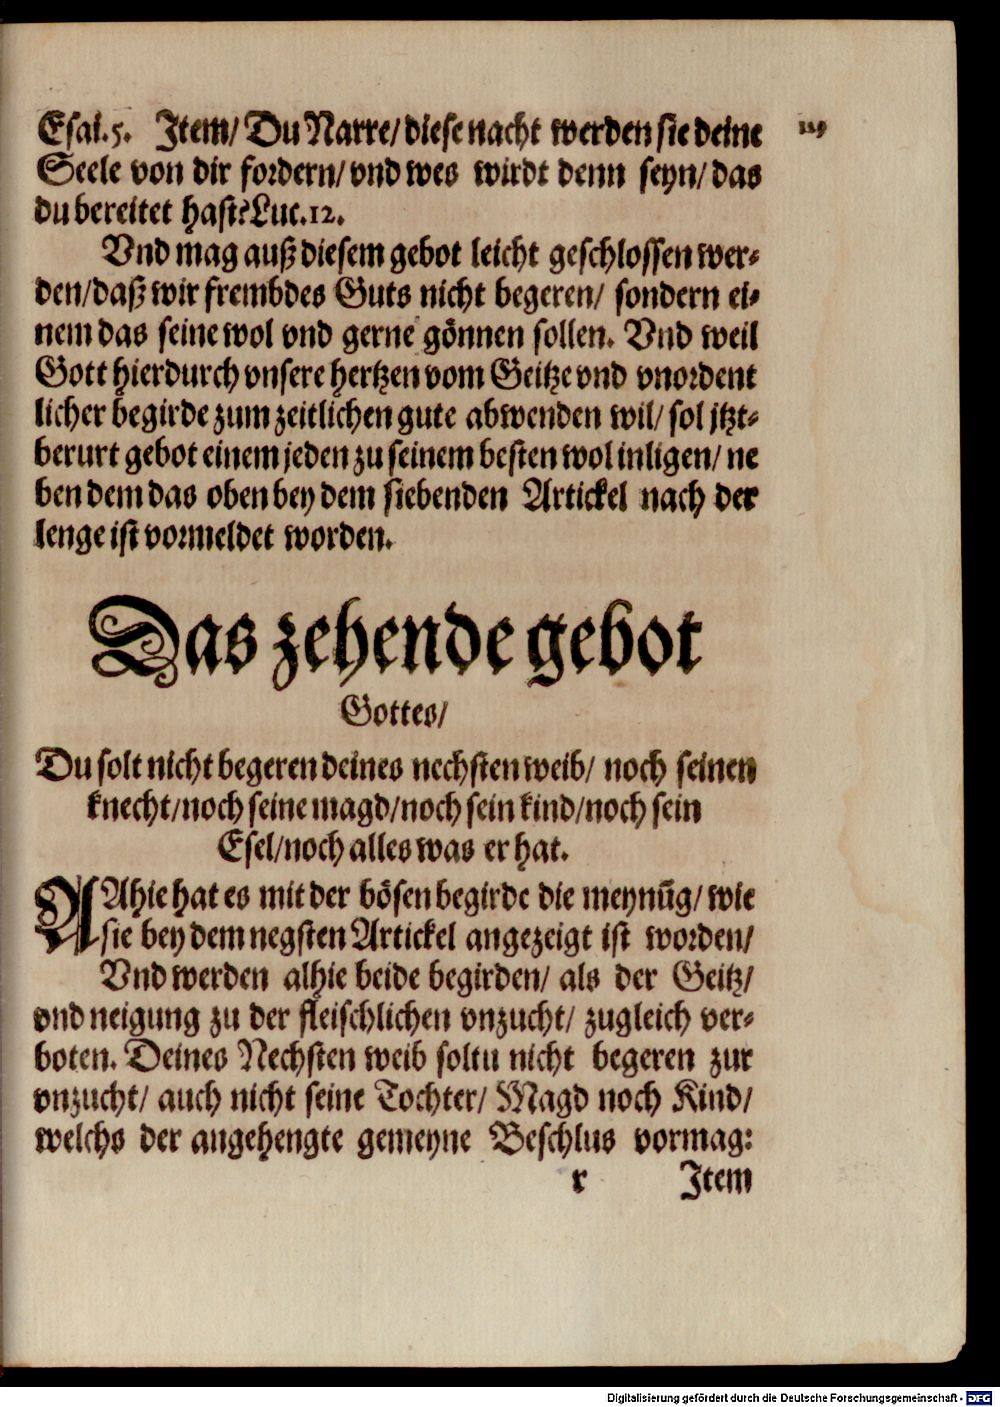 Esai.5. Item/ Du Narre/ diese nacht werden sie deine
Seele von dir fordern/ vnd wes wirdt denn seyn/ das
du bereitet hast? Luc.12.
Vnd mag auß diesem gebot leicht geschlossen wer⸗
den/ daß wir frembdes Guts nicht begeren/ sondern ei⸗
nem das seine wol vnd gerne gönnen sollen. Vnd weil
Gott hierdurch vnsere hertzen vom Geitze vnd vnordent
licher begirde zum zeitlichen gute abwenden wil/ sol jtzt⸗
berurt gebot einem jeden zu seinem besten wol inligen/ ne
ben dem das oben bey dem siebenden Artickel nach der
lenge ist vormeldet worden.
Das zehende gebot
Gottes/
Du solt nicht begeren deines nechsten weib/ noch seinen
knecht/ noch seine magd/ noch sein kind/ noch sein
Esel/ noch alles was er hat.
AAhie hat es mit der bösen begirde die meynūg/ wie
sie bey dem negsten Artickel angezeigt ist worden/
Vnd werden alhie beide begirden/ als der Geitz/
vnd neigung zu der fleischlichen vnzucht/ zugleich ver⸗
boten. Deines Nechsten weib soltu nicht begeren zur
vnzucht/ auch nicht seine Tochter/ Magd noch Kind/
welchs der angehengte gemeyne Beschlus vormag:
r Item
Digitalisierung gefördert durch die Deutsche Forschungsgemeinschaft - DFG